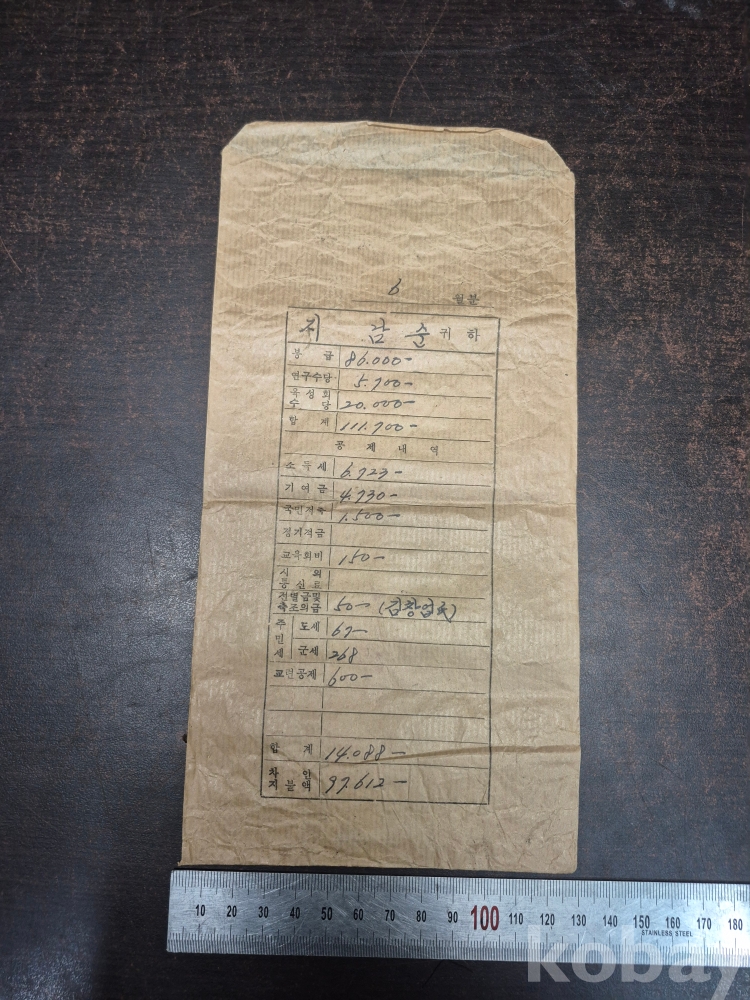 6 월분
감 순 귀 하
봉 급 86.000-
연구수당 5.700-
육성회
수 당 20.000-
합 계 111.700-
공 제 내 역
소 득 세 6.723-
기 여 금 4.730-
국민저축 1.500-
정기적금
교육회비 150-
시 외
통 신 료
전별금및
축조의금 50- (김창업氏)
주 민 세 도세 67-
군세 268
교련공제 600-
합 계 14.088-
차 인
지 불 액 97.612-
10 20 30 40 50 60 70 80 90 100 110 120 130 140 150 160 170 180
STAINLESS STEEL
kobay